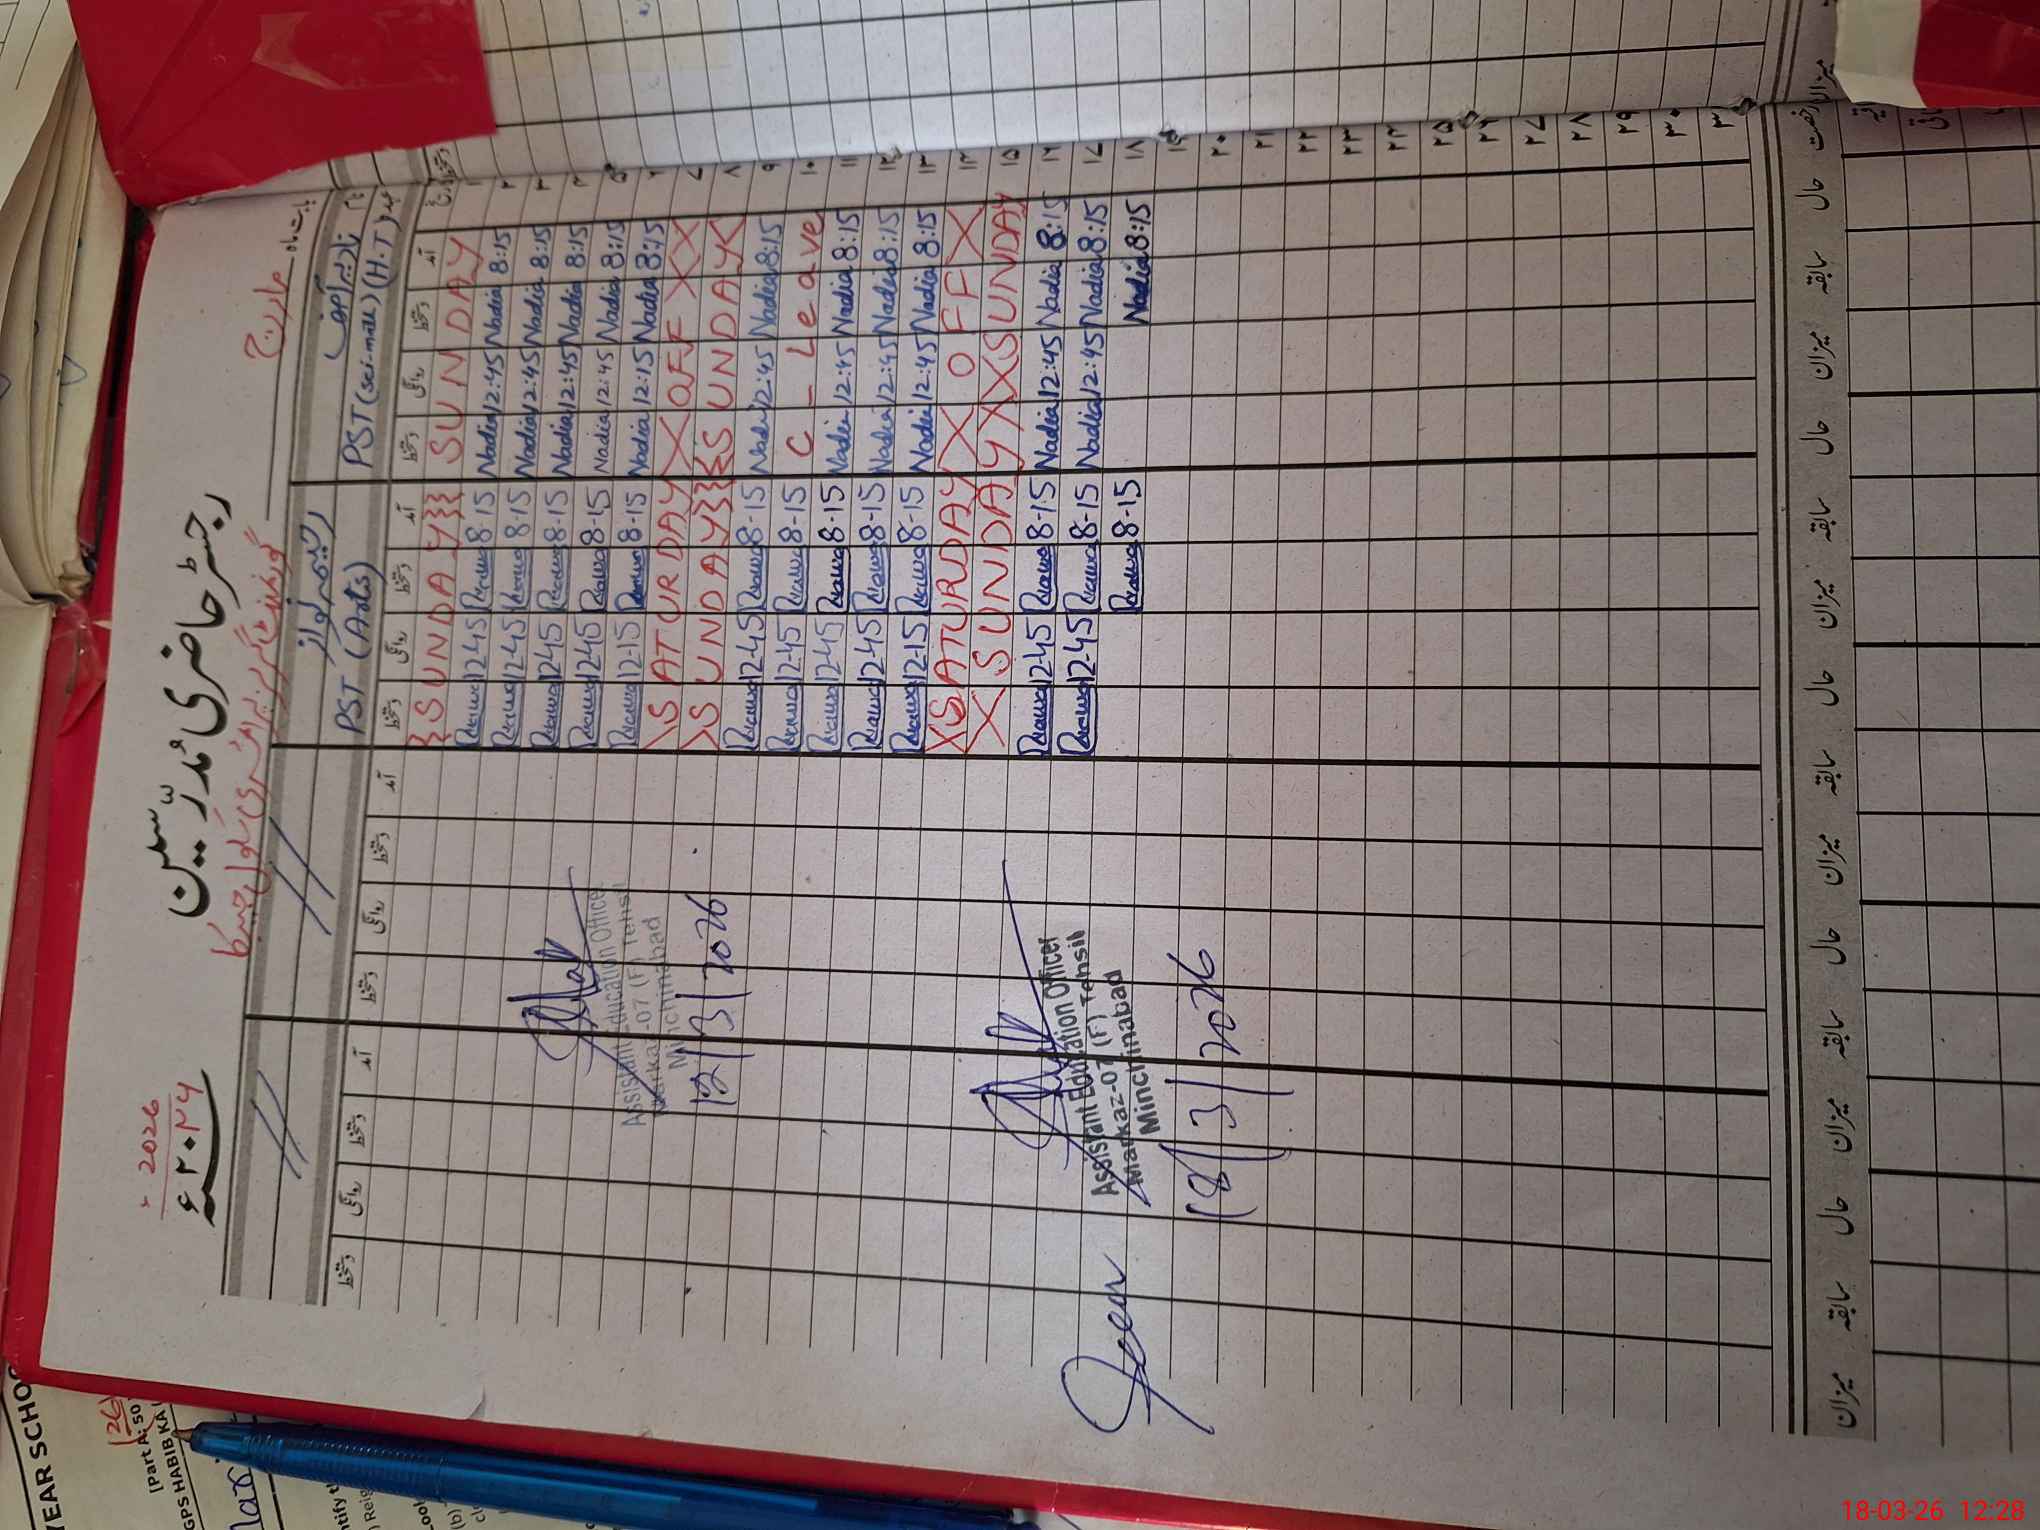 رجسٹر حاضری مُدرّسین
2026
۲۰۲۶ء
گورنمنٹ گرلز پرائمری سکول حبیبکا
بابت ماہ مارچ
نام
عہدہ
PST (sci-math) (H.T)
PST (Arts)
تاریخ آمد دستخط روانگی دستخط آمد دستخط روانگی دستخط آمد دستخط روانگی دستخط آمد دستخط روانگی دستخط
۱ SUNDAY SUNDAY
۲ 8:15 Nadia 12:45 Nadia 8-15 12-45
۳ 8:15 Nadia 12:45 Nadia 8-15 12-45
۴ 8:15 Nadia 12:45 Nadia 8-15 12-45
۵ 8:15 Nadia 12:45 Nadia 8-15 12-45
۶ 8:15 Nadia 12:15 Nadia 8-15 12-15
۷ XX OFF X SATURDAY
۸ SUNDAY SUNDAY
۹ 8:15 Nadia 12:45 Nadia 8-15 12-45
۱۰ C - Leave 8-15 12-45
۱۱ 8:15 Nadia 12:45 Nadia 8-15 12-45
۱۲ 8:15 Nadia 12:45 Nadia 8-15 12-45
۱۳ 8:15 Nadia 12:45 Nadia 8-15 12-15
۱۴ X OFF X SATURDAY X
۱۵ SUNDAY XX SUNDAY X
۱۶ 8:15 Nadia 12:45 Nadia 8-15 12-45
۱۷ 8:15 Nadia 12:45 Nadia 8-15 12-45
۱۸ 8:15 Nadia 8-15
۱۹
۲۰
۲۱
۲۲
۲۳
۲۴
۲۵
۲۶
۲۷
۲۸
۲۹
۳۰
۳۱
Assistant Education Officer
Markaz-07 (F) Tehsil
Minchinabad
12/3/2026
Assistant Education Officer
Markaz-07 (F) Tehsil
Minchinabad
18/3/2026
رخصت حال سابقہ میزان حال سابقہ میزان حال سابقہ میزان حال سابقہ میزان حال سابقہ میزان
YEAR SCHOO
[Part A: 50
GPS HABIB KA
18-03-26 12:28